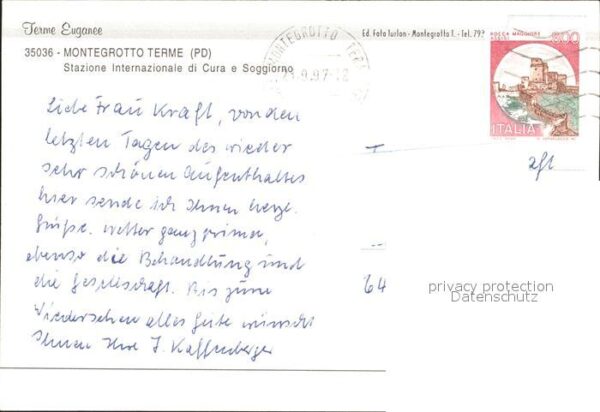 Terme Euganee
Ed. Foto Turlon - Montegrotto T. - Tel. 793
35036 - MONTEGROTTO TERME (PD)
Stazione Internazionale di Cura e Soggiorno
MONTEGROTTO TER
23.9.97-12
ROCCA MAGGIORE
ASSISI
800
ITALIA
Liebe Frau Kraft, von den
letzten Tagen des wieder
sehr schönen Aufenthaltes
hier sende ich Ihnen herzl.
Grüße. Wetter ganz prima,
ebenso die Behandlung und
die Gesellschaft. Bis zum
Wiedersehen alles Gute wünscht
Ihnen Ihre J. Kaffenberger
aft
64
privacy protection
Datenschutz